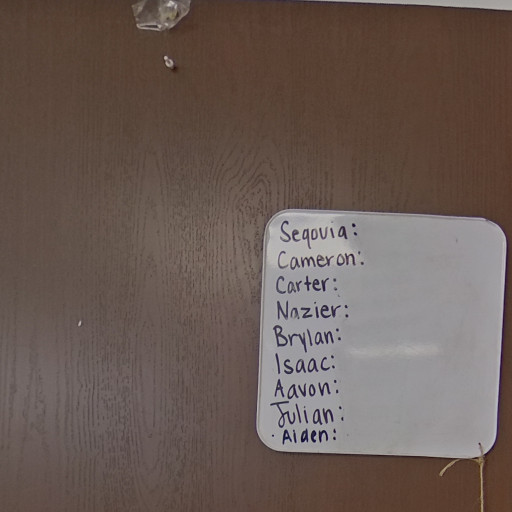 Seqovia:
Cameron:
Carter:
Nazier:
Brylan:
Isaac:
Aavon:
Julian:
· Aiden: